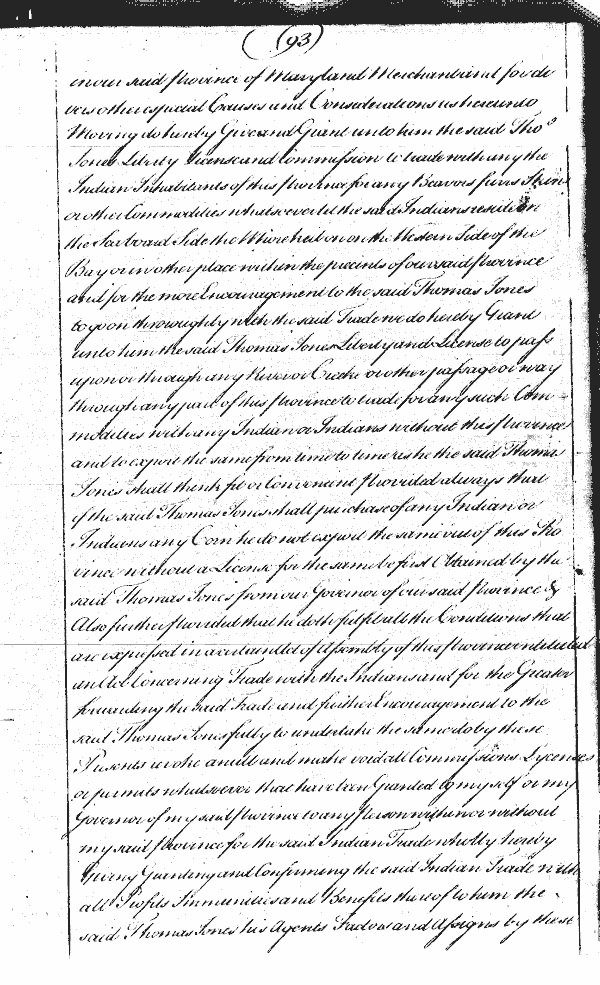 (93)
in our said Province of Maryland Merchant and for di
vers other especial Causes and Considerations us hereunto
Moving do hereby Give and Grant unto him the said Tho.s
Jones Liberty License and Commission to trade with any the
Indian Inhabitants of this Province for any Beavors furrs Skins
or other Commodities whatsoever let the said Indians reside on
the Sea board Side the Whorekeil or on the Western Side of the
Bay or in other place within the precints of our said Province
and for the more Encouragement to the said Thomas Jones
to go on throroughly with the said Trade we do hereby Grant
unto him the said Thomas Jones Liberty and License to pass
upon or through any River or Creeke or other passage or way
through any part of this Province to trade for any such Com=
modities with any Indian or Indians without this Province
and to export the same from time to time as he the said Thomas
Jones shall think fit or Convenient Provided always that
if the said Thomas Jones shall purchase of any Indian or
Indians any Corn he do not export the same out of this Pro
vince without a License for the same be first Obtained by the
said Thomas Jones from our Governor of our said Province &
Also further Provided that he doth fulfil all the Conditions that
are expressed in a certain Act of Assembly of this Province intituled
an Act Concerning Trade with the Indians and for the Greater
forwarding the said Trade and further Encouragement to the
said Thomas Jones fully to undertake the same do by these
Presents revoke anull and make void all Commissions Lycenses
or permits whatsoever that have been Granted by myself or my
Governor of my said Province to any Person within or without
my said Province for the said Indian Trade wholly hereby
Giving Granting and Confirming the said Indian Trade with
all Profits Immunities and Benefits thereof to him the
said Thomas Jones his Agents Factors and Assigns by these